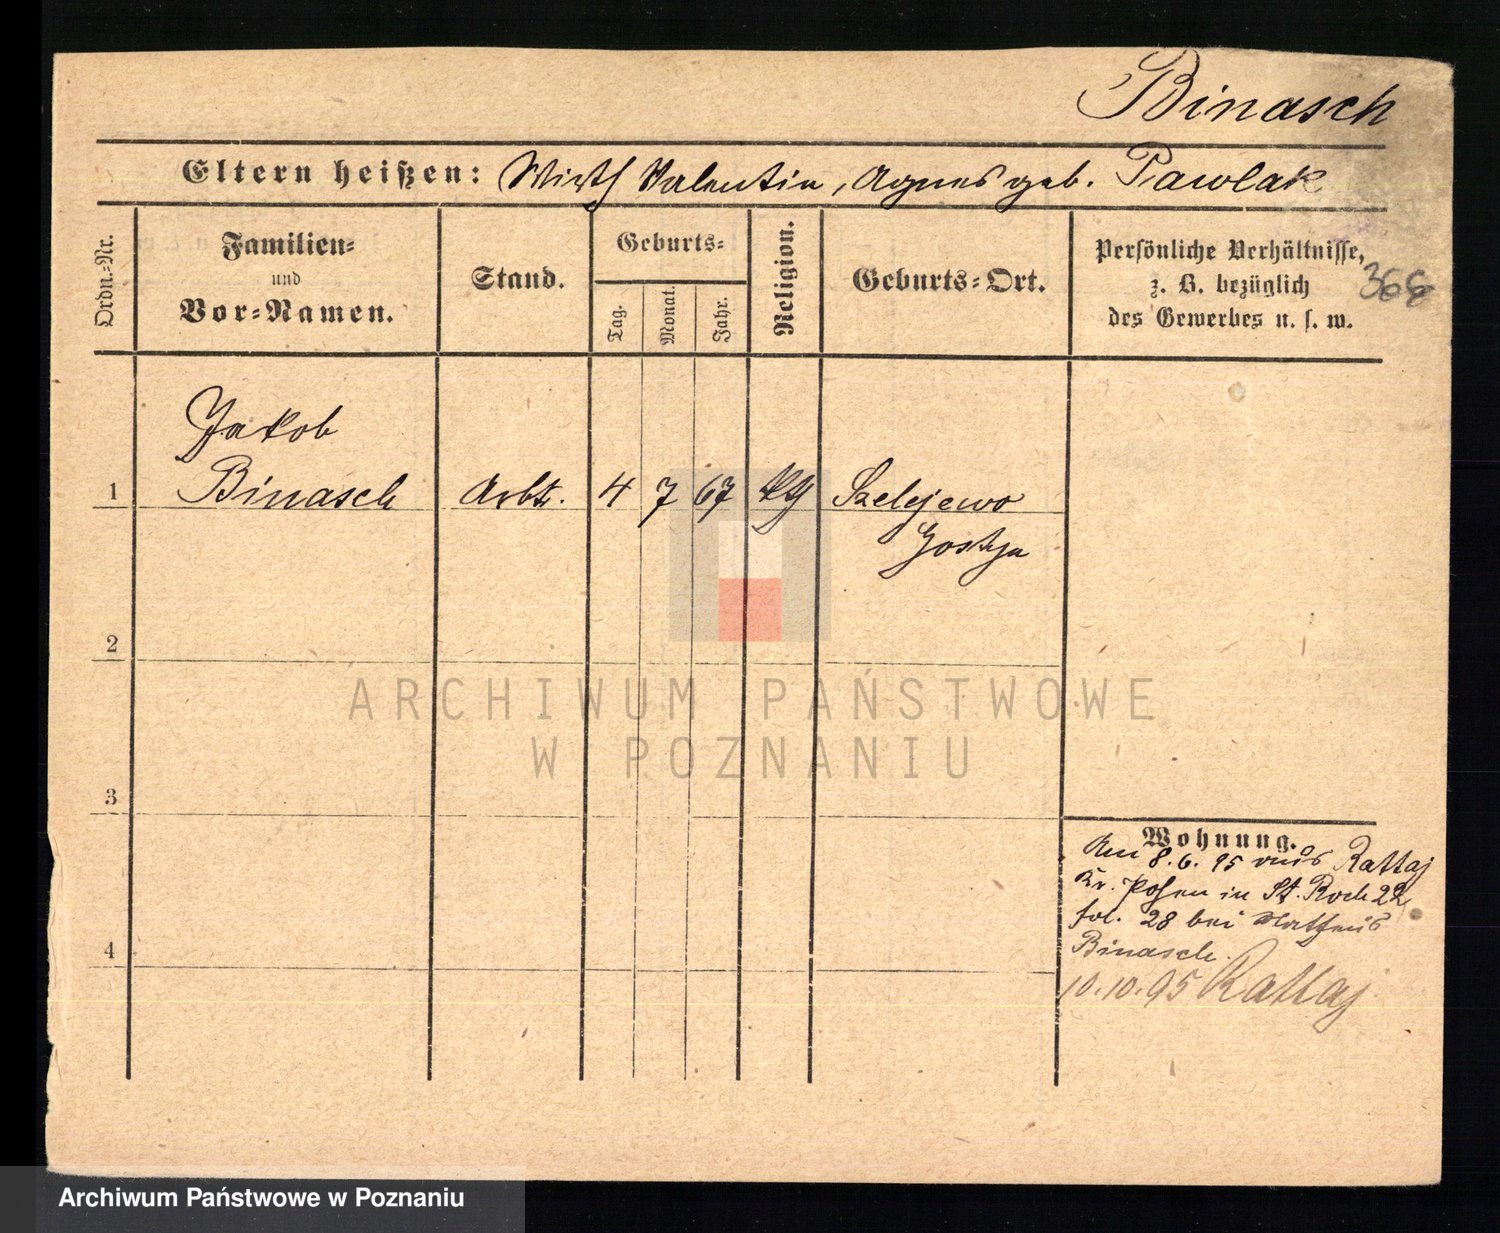 Binasch
Eltern heißen: Wirth Valentin, Agnes geb. Pawlak
Ordn.-Nr.
Familien-
und
Vor-Namen.
Stand.
Geburts-
Tag.
Monat.
Jahr.
Religion.
Geburts-Ort.
Persönliche Verhältnisse,
z. B. bezüglich
des Gewerbes u. s. w.
366
Jakob
1 Binasch Arbtr. 4 7 67 kath Szelejewo
Gostyn
2
ARCHIWUM PAŃSTWOWE
W POZNANIU
3
Wohnung.
Am 8.6.95 aus Rattaj
Kr. Posen in St. Roch 22
fol. 28 bei Mathäus
4 Binasch.
10.10.95 Rattaj
Archiwum Państwowe w Poznaniu